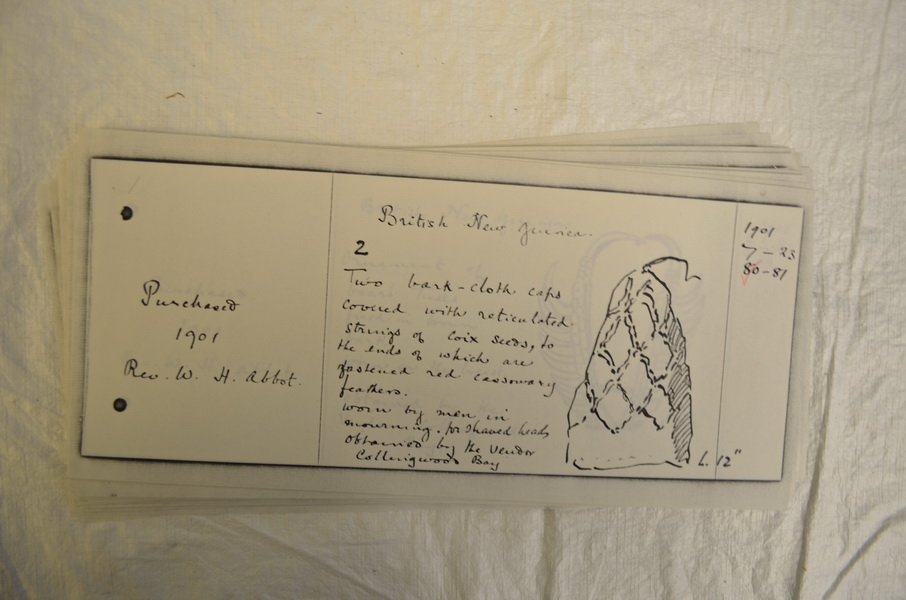 Purchased
1901
Rev. W. H. Abbot.
British New Guinea.
2
Two bark-cloth caps
covered with reticulated
strings of coix seeds, to
the ends of which are
fastened red cassowary
feathers.
worn by men in
mourning. for shaved heads
obtained by the vendor
Collingwood Bay
L. 12"
1901
7-23
80-81